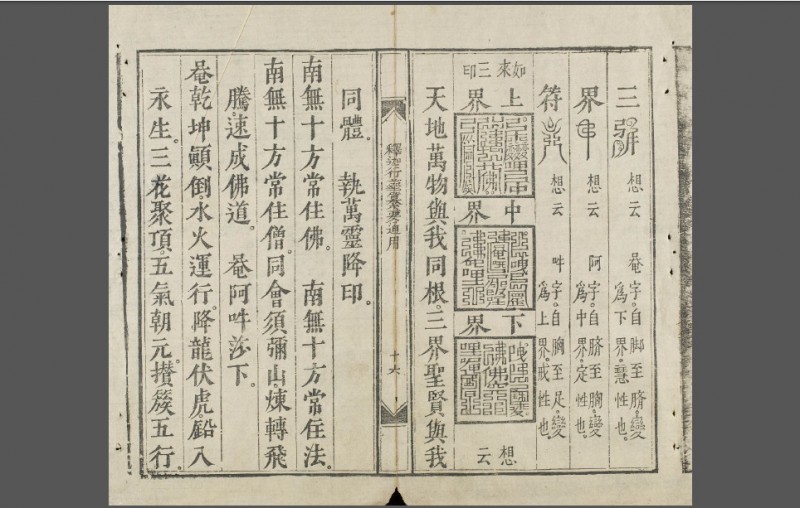 三　想云　唵字。自脚至臍。變爲下界。慧性也。
界　想云　阿字。自臍至胸。變爲中界。定性也。
符　想云　吽字。自胸至足。變爲上界。戒性也。
如來三印　上界　中界　下界　想云
天地萬物與我同根。三界聖賢與我
十六
同體。　執萬靈降印。
南無十方常住佛。　南無十方常住法。
南無十方常住僧。同會須彌山。煉轉飛
騰。速成佛道。　唵阿吽莎下。
唵乾坤顚倒。水火運行。降龍伏虎。鉛入
永生。三花聚頂。五氣朝元。攅簇五行。